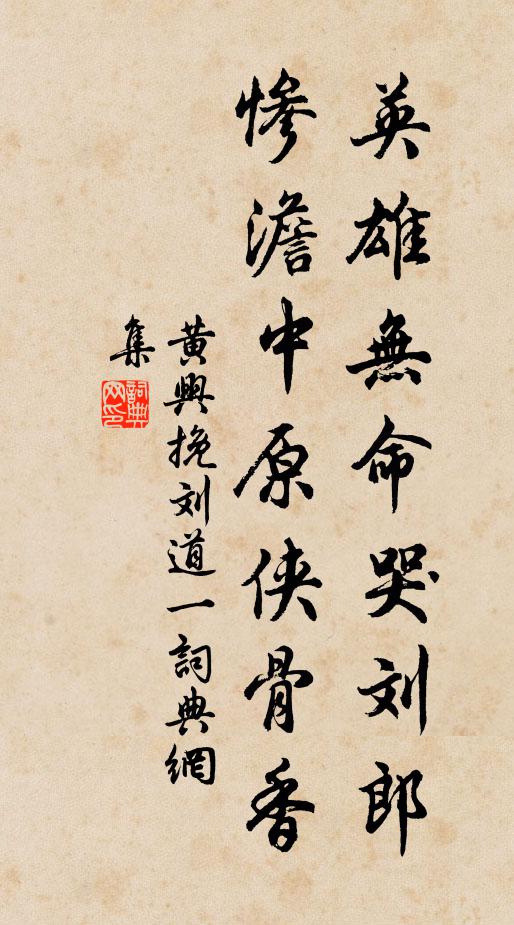 英雄無命哭刘郎
惨澹中原侠骨香
黄興挽刘道一詞典網
集
詞典
网印